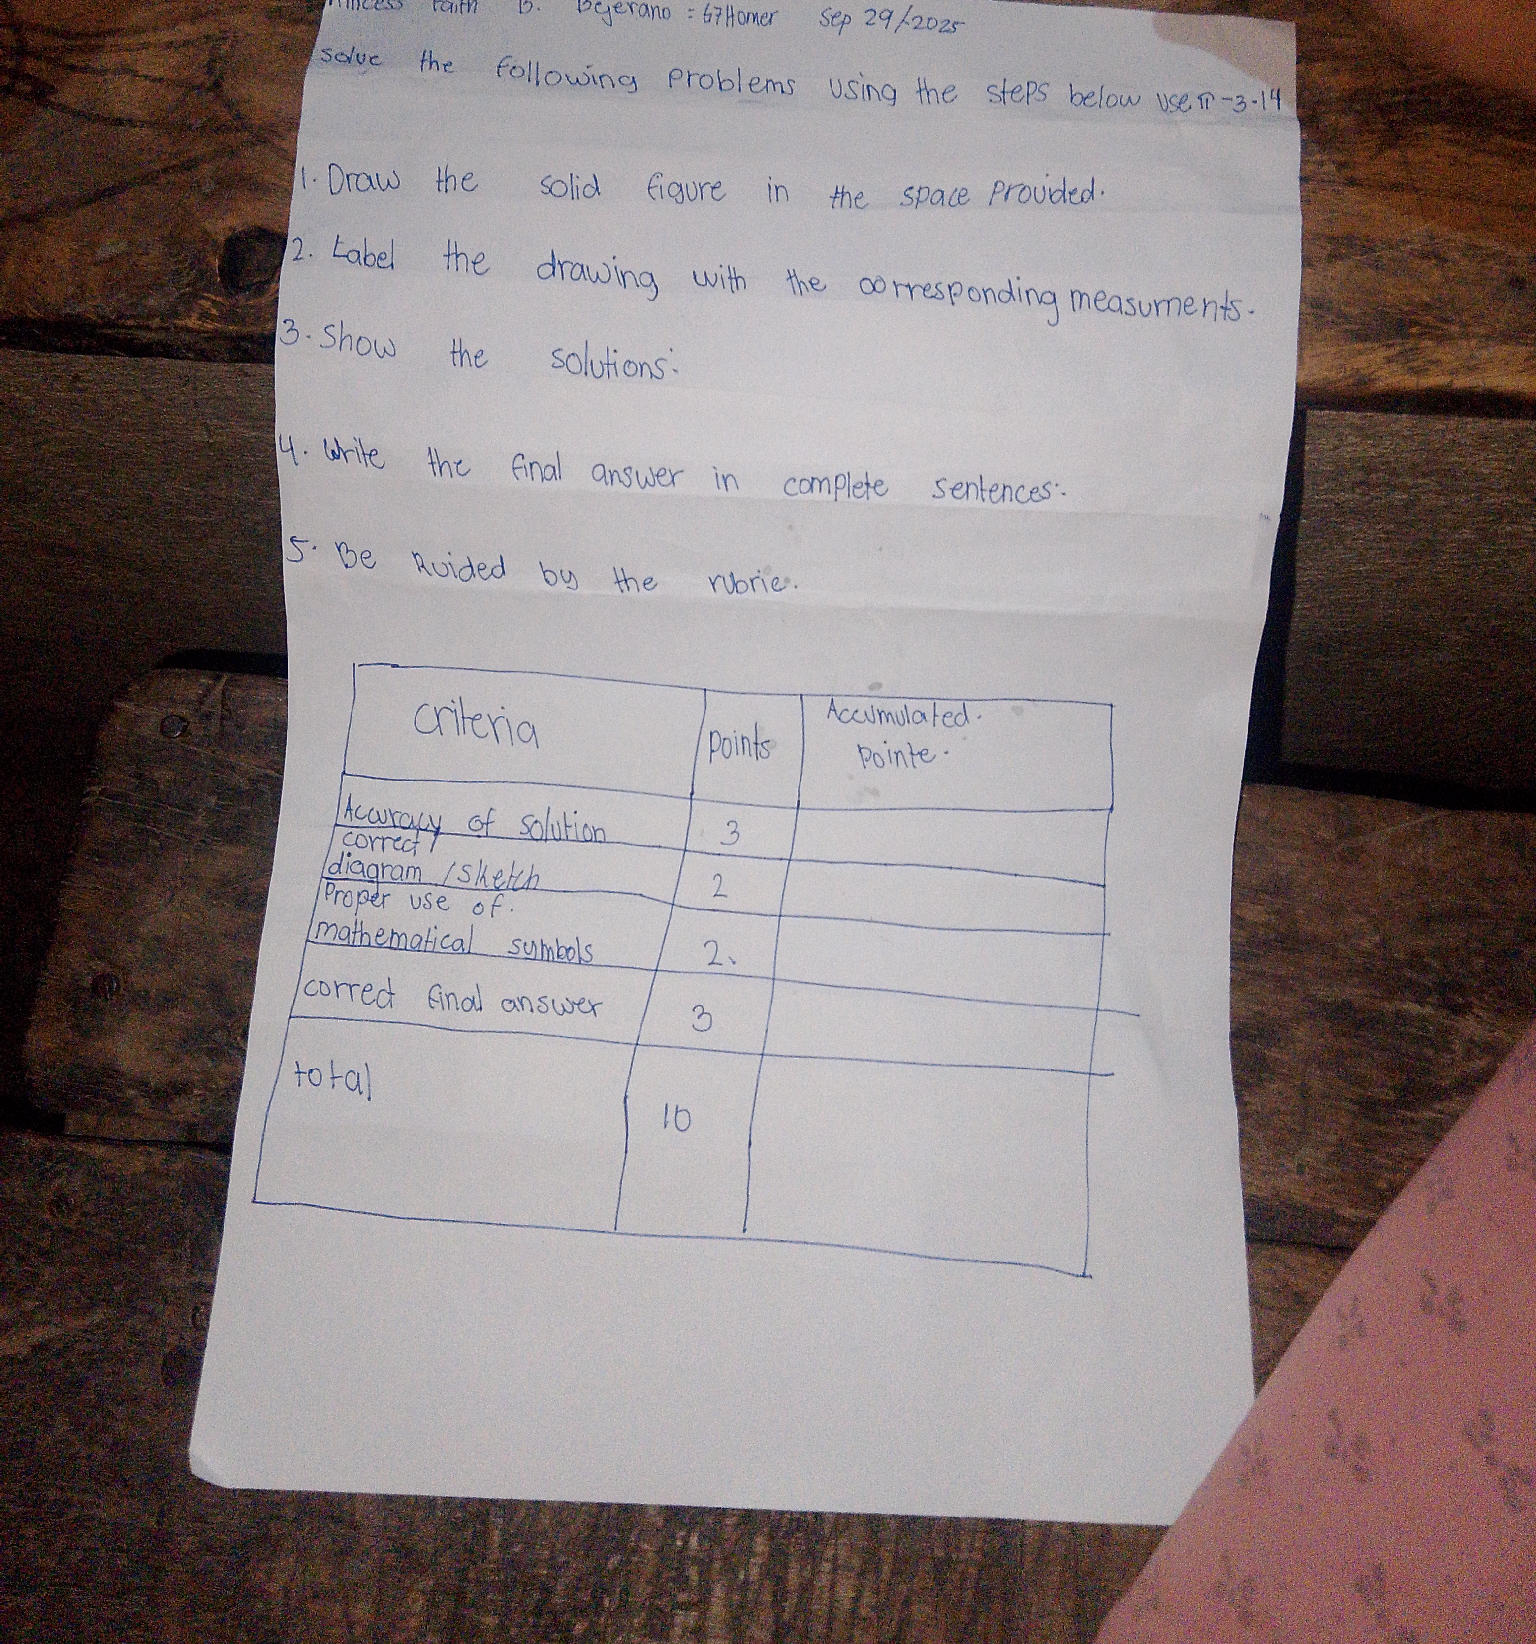 Faith B. Bejerano = G7Homer Sep 29/-2025
solve the following problems using the steps below use π-3.14
1. Draw the solid figure in the space provided.
2. Label the drawing with the corresponding measurments.
3. Show the solutions.
4. Write the final answer in complete sentences.
5. Be Ruided by the rubric.
Criteria points Accumulated.
pointe.
Accuracy of solution 3
correct
diagram / sketch 2
Proper use of.
mathematical symbols 2.
correct final answer 3
total 10